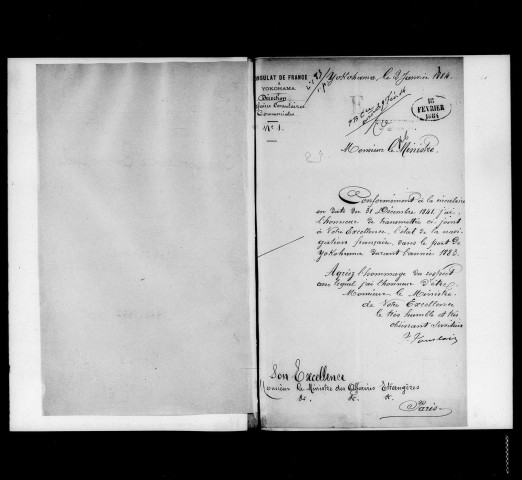 CONSULAT DE FRANCE
À
YOKOHAMA.
Direction
des Affaires Consulaires
Commerciales
N° 1.
Yokohama, le 2 Janvier 1884.
18
FEVRIER
1884
Monsieur le Ministre,
Conformément à la circulaire
en date du 31 Décembre 1841, j'ai
l'honneur de transmettre ci-joint
à Votre Excellence, l'état de la navi-
gation française, dans le port de
Yokohama durant l'année 1883.
Agréez l'hommage du respect
avec lequel j'ai l'honneur d'être,
Monsieur le Ministre,
de Votre Excellence
le très humble et très
obéissant Serviteur
Son Excellence
Monsieur le Ministre des Affaires Etrangères
&. &. &.
Paris